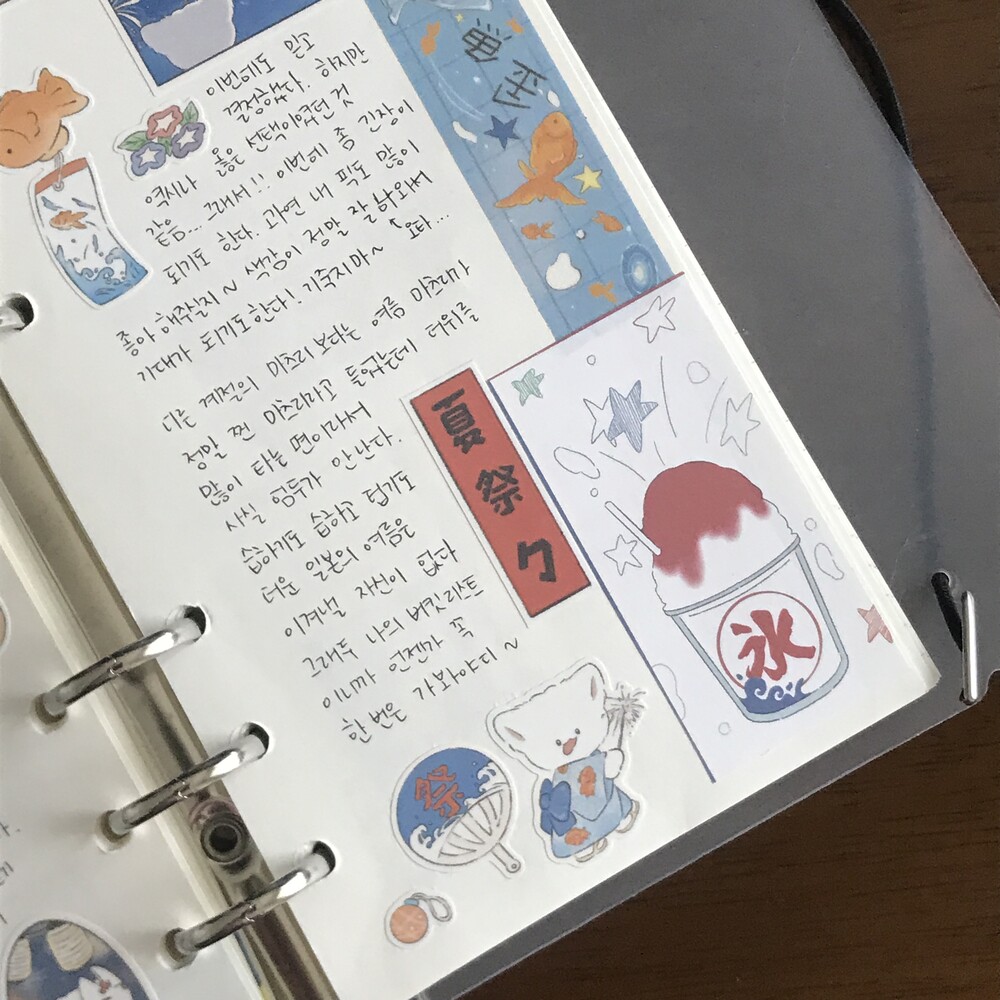 이번에도 믿고
결정했다. 하지만
옳은 선택이였던 것
역시나
같음... 그래서!! 이번에 좀 긴장이
되기도 한다. 과연 내 픽도 많이
좋아 해주실지~ 색감이 정말 잘 나와서
기대가 되기도 한다! 기죽지마~
다른 계절의 마츠리 보다는 여름 마츠리가
정말 찐 마츠리라고 들었는데 더위를
많이 타는 편이라서
사실 엄두가 안 난다.
습하기도 습하고 덥기도
더운 일본의 여름은
이겨낼 자신이 없다
그래두 나의 버킷리스트
이니까 언젠가 꼭
한 번은 가봐야디~
夏祭り
氷
祭